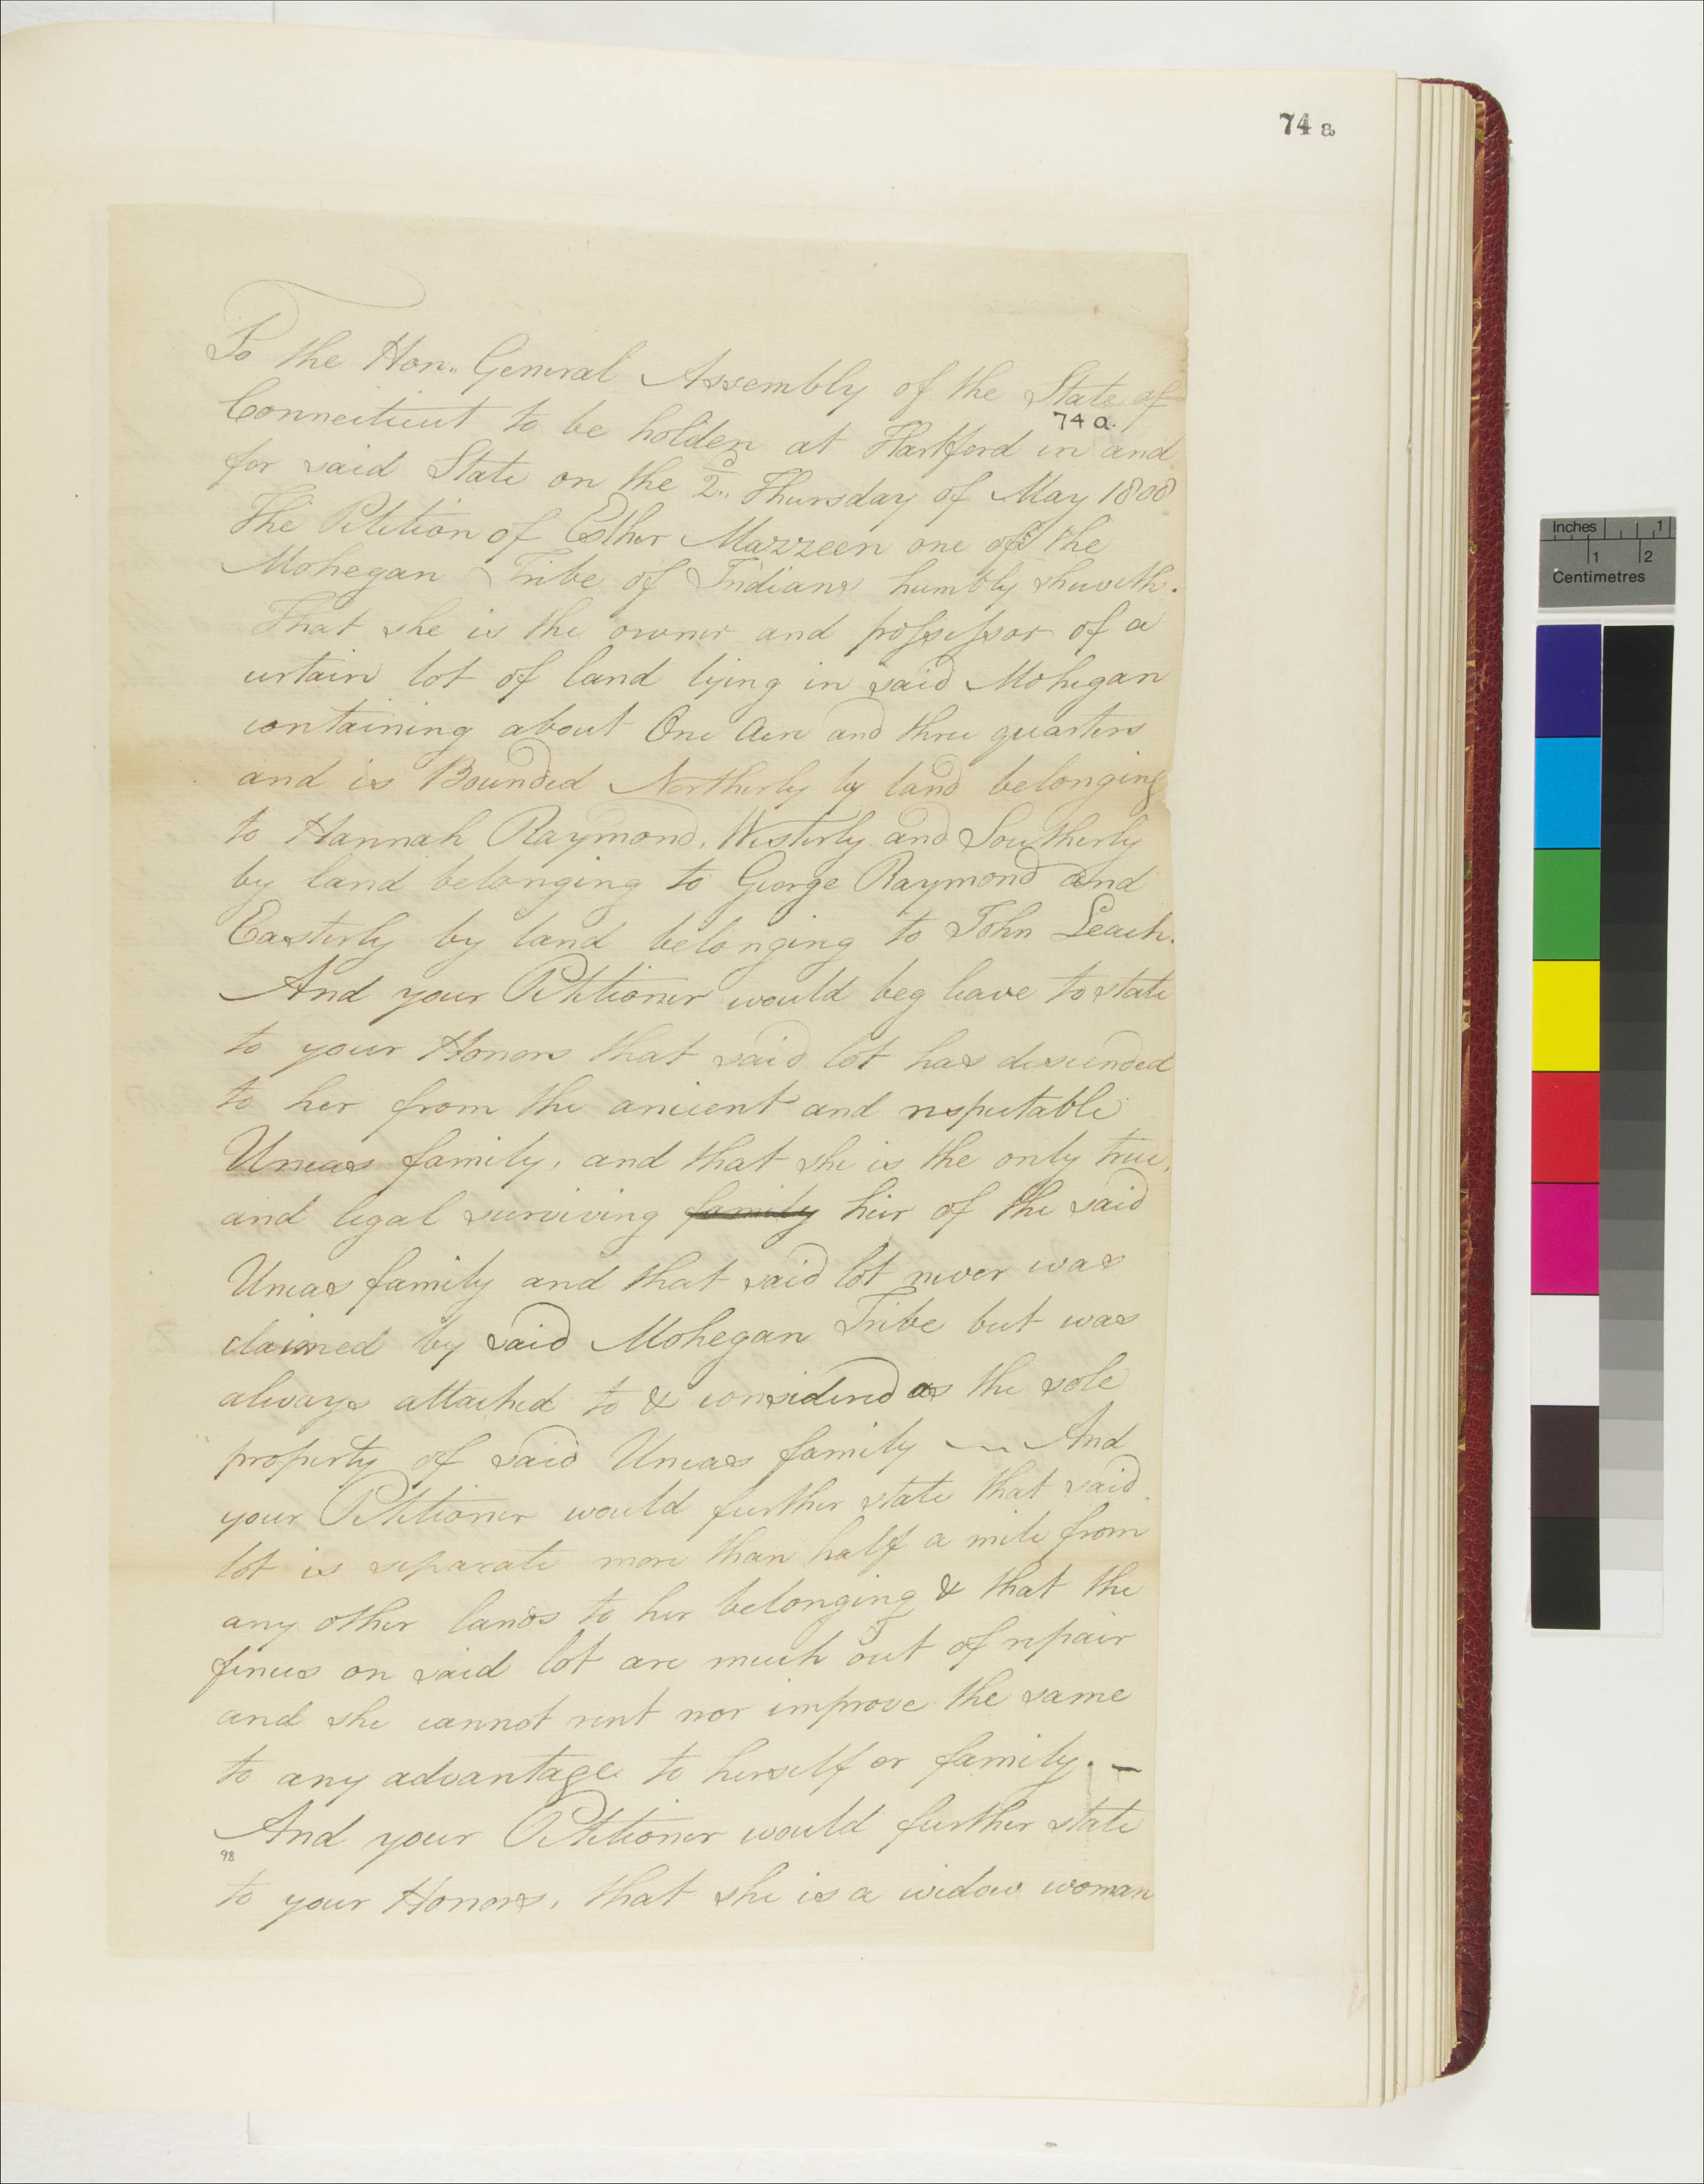 74 a
To the Hon.. General Assembly of the State of
74 a.
Connecticut to be holden at Hartford in and
for said State on the 2.d Thursday of May 1808
The Petition of Esther Mazzeen one of the
Mohegan Tribe of Indians humbly sheweth.
That she is the owner and possessor of a
certain lot of land lying in said Mohegan
containing about One Acre and three quarters
and is Bounded Northerly by land belonging
to Hannah Raymond, Westerly and Southerly
by land belonging to George Raymond and
Easterly by land belonging to John Leach.
And your Petitioner would beg leave to state
to your Honors that said lot has descended
to her from the ancient and respectable
Uncas family, and that she is the only true,
and legal surviving family heir of the said
Uncas family and that said lot never was
claimed by said Mohegan Tribe but was
always attached to & considered as the sole
property of said Uncas family — And
your Petitioner would further state that said
lot is separate more than half a mile from
any other lands to her belonging & that the
fences on said lot are much out of repair
and she cannot rent nor improve the same
to any advantage to herself or family. —
And your Petitioner would further state
98
to your Honors, that she is a widow woman
Inches 1
1 2
Centimetres